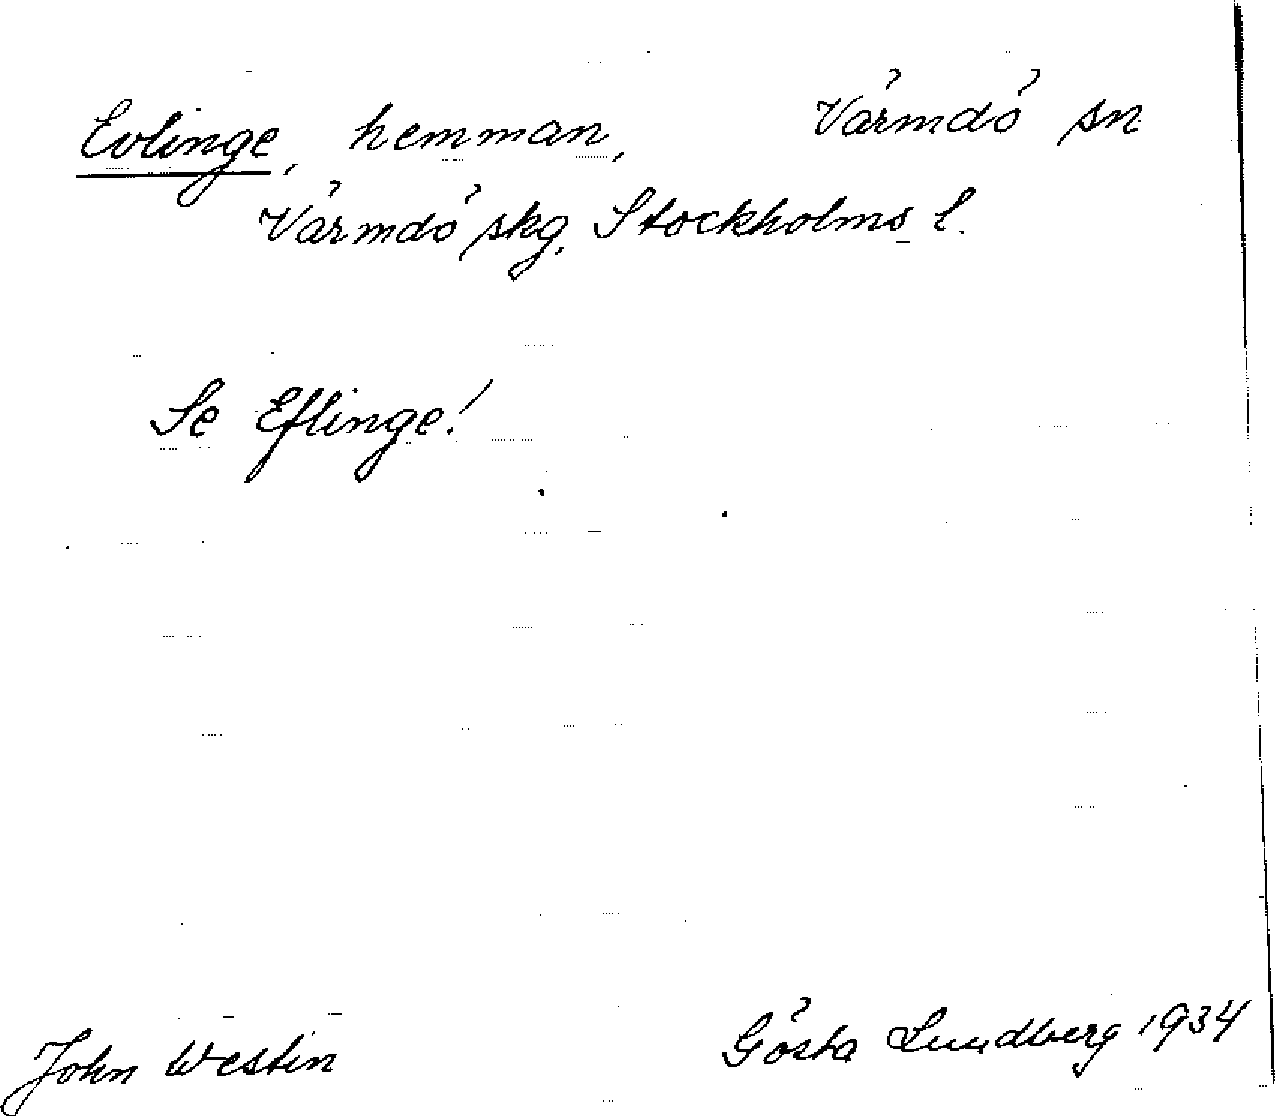 Evlinge, hemman, Värmdö sn
Värmdö skg, Stockholms l.
Se Eflinge!
John Westin Gösta Lundberg 1934